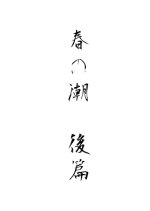 春の潮 後篇